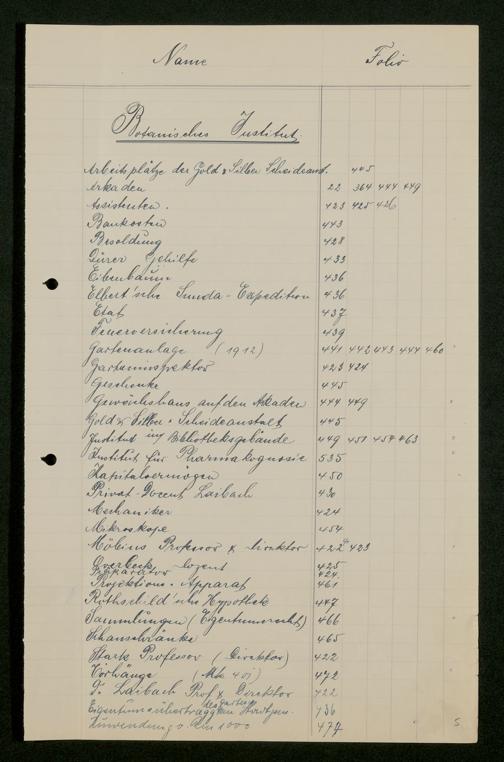 Name Folio
Botanisches Institut.
Arbeitsplätze der Gold & Silber Scheideanst. 445
Arkaden 22 364 444 449
Assistenten. 423 425 426
Baukosten 443
Besoldung 428
Dürer Gehilfe 433
Eibenbaum 436
Elbert'sche Sunda-Expedition 436
Etat 437
Feuerversicherung 439
Gartenanlage (1912) 441 442 443 444 460
Garteninspektor 423 424
Geschenke 445
Gewächshaus auf den Arkaden 444 449
Gold & Silber-Scheideanstalt 445
Institut im Bibliotheksgebäude 449 451 457 463
Institut für Pharmakognosie 535
Kapitalvermögen 450
Privat-Docent Laibach 430
Mechaniker 424
Mikroskope 454
Möbius Professor & Direktor 422 423
Overbeck, Dozent 425
Präparator 424
Projektions-Apparat 461
Rothschild'sche Hypothek 447
Sammlungen (Eigentumsrecht) 466
Schauschränke 465
Stark Professor (Direktor) 422
Vorhänge 472
F. Laibach Prof & Direktor 422
Eigentumsübertragung des 736
Zuwendung v. Rm 1000 474
5